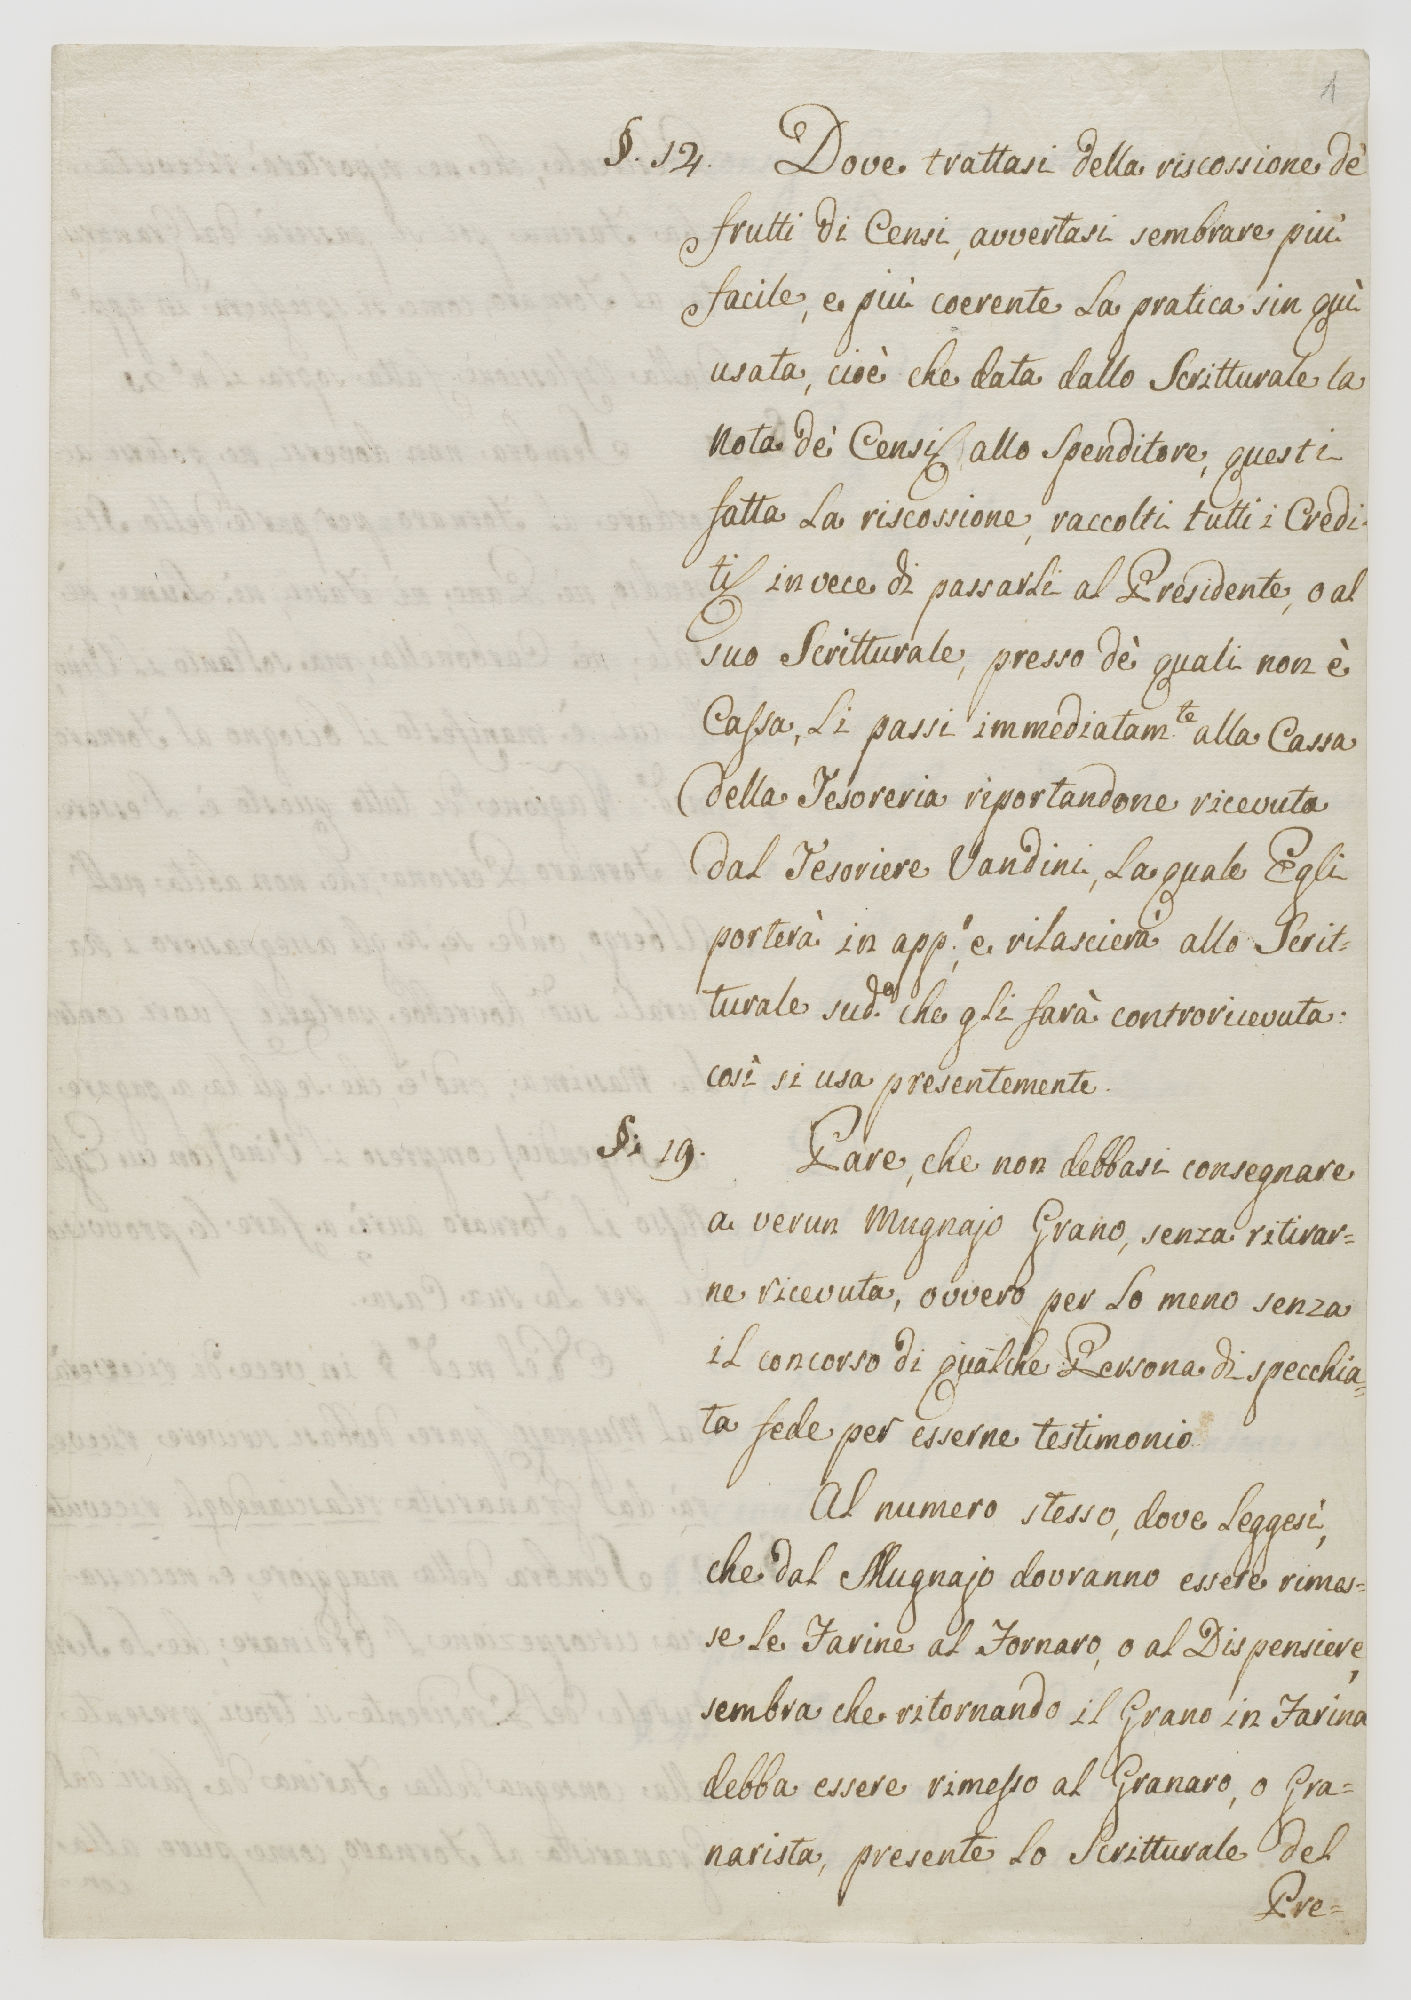 1
§. 12. Dove trattasi della riscossione de'
frutti di Censi, avvertasi sembrare più
facile, e più coerente la pratica sin quì
usata, cioè che data dallo Scritturale la
nota de' Censi allo Spenditore, questi
fatta la riscossione, raccolti tutti i Credi-
ti in vece di passarli al Presidente, o al
suo Scritturale, presso de' quali non è
Cassa, li passi immediatam.te alla Cassa
della Tesoreria riportandone ricevuta
dal Tesoriere Vandini, la quale Egli
porterà in app.o, e rilascierà allo Scrit=
turale sud.o che gli farà controricevuta:
così si usa presentemente.
§: 19. Pare, che non debbasi consegnare
a verun Mugnajo Grano, senza ritirar=
ne ricevuta, ovvero per lo meno senza
il concorso di qualche Persona di specchia=
ta fede per esserne testimonio.
Al numero stesso, dove leggesi,
che dal Mugnajo dovranno essere rimes=
se le Farine al Fornaro, o al Dispensiere,
sembra che ritornando il Grano in Farina
debba essere rimesso al Granaro, o Gra=
narista, presente lo Scritturale del
Pre=